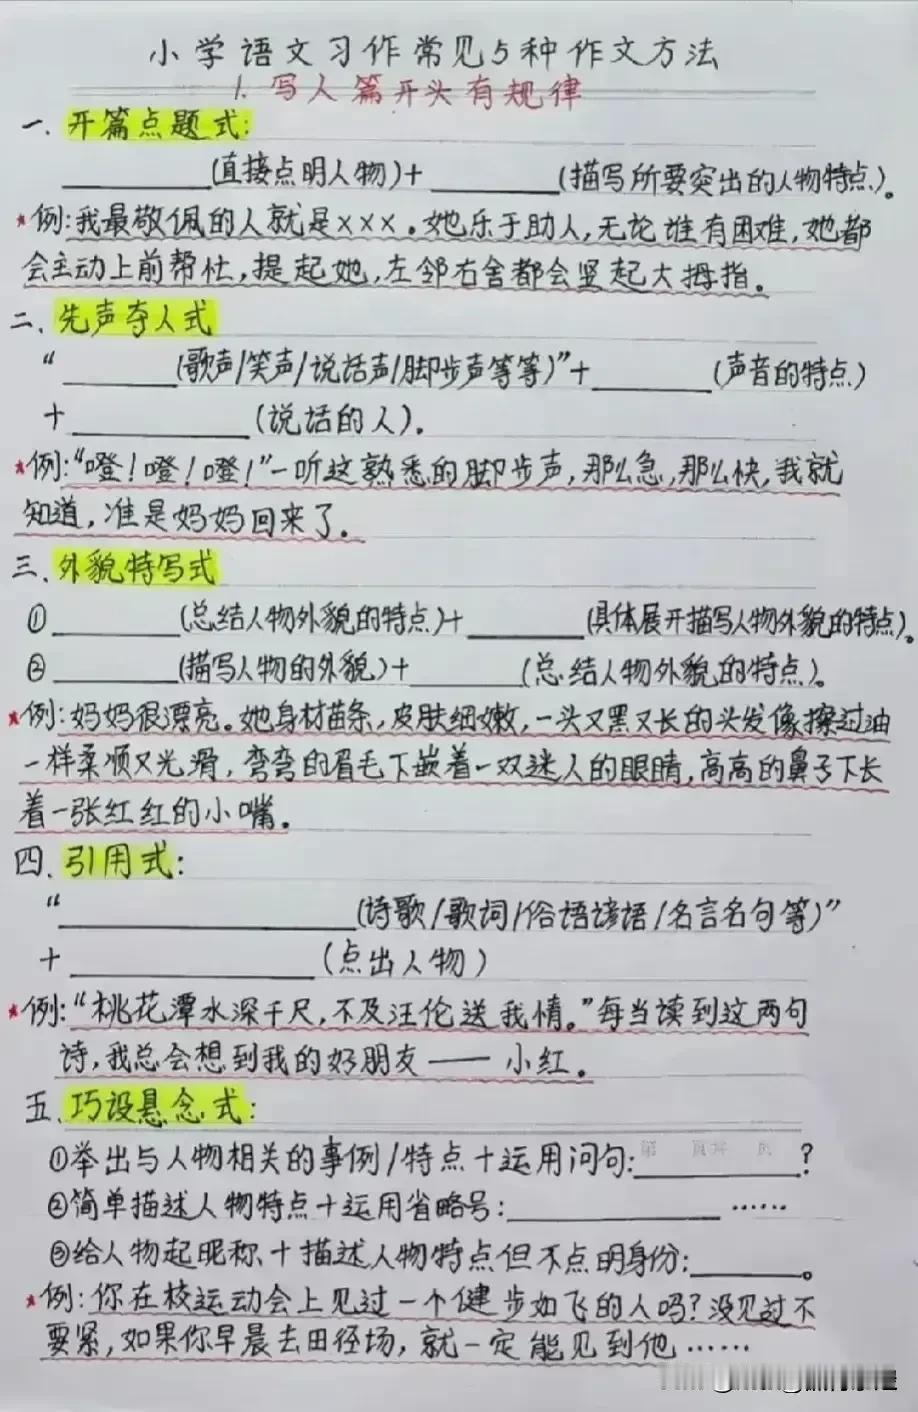 小学语文习作常见5种作文方法
1. 写人篇开头有规律
一、开篇点题式:
________(直接点明人物)+ ________(描写所要突出的人物特点)。
★例:我最敬佩的人就是×××。她乐于助人,无论谁有困难,她都
会主动上前帮忙,提起她,左邻右舍都会竖起大拇指。
二、先声夺人式
“________(歌声/笑声/说话声/脚步声等等)”+________(声音的特点)
+________(说话的人)。
★例:“噔!噔!噔!”一听这熟悉的脚步声,那么急,那么快,我就
知道,准是妈妈回来了。
三、外貌特写式
①________(总结人物外貌的特点)+________(具体展开描写人物外貌的特点)。
②________(描写人物的外貌)+________(总结人物外貌的特点)。
★例:妈妈很漂亮。她身材苗条,皮肤细嫩,一头又黑又长的头发像擦过油
一样柔顺又光滑,弯弯的眉毛下嵌着一双迷人的眼睛,高高的鼻子下长
着一张红红的小嘴。
四、引用式:
“________(诗歌/歌词/俗语谚语/名言名句等)”
+________(点出人物)
★例:“桃花潭水深千尺,不及汪伦送我情。”每当读到这两句
诗,我总会想到我的好朋友——小红。
五、巧设悬念式:
①举出与人物相关的事例/特点+运用问句:________?
②简单描述人物特点+运用省略号:________……
③给人物起昵称+描述人物特点但不点明身份:________。
★例:你在校运动会上见过一个健步如飞的人吗?没见过不
要紧,如果你早晨去田径场,就一定能见到他……